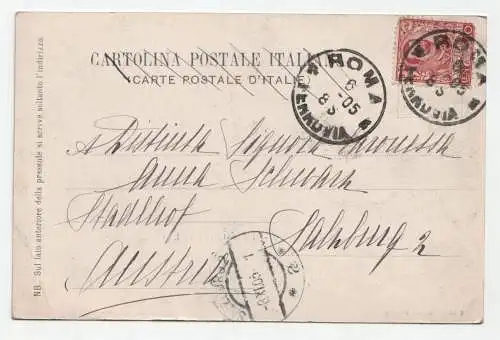 CARTOLINA POSTALE ITALIANA
(CARTE POSTALE D'ITALIE)
ROMA
FERROVIA
6
-05
8 S
ROMA
FERROVIA
-05
8 S
NB. Sul lato anteriore della presente si scrive soltanto l'indirizzo.
A Distinta Signora Baronessa
Anna Schwarz
Stadlhof
Salzburg 2
Austria
-8 XI 05
1
* 2 *